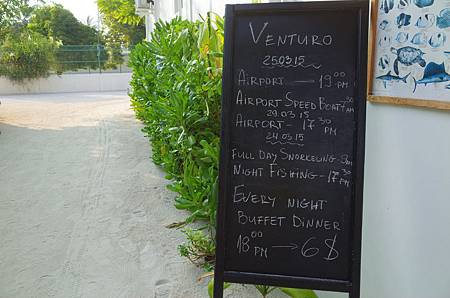 VENTURO
25.03.15
AIRPORT — 19 00 PM
AIRPORT SPEED BOAT 7 30 AM
29.03.15
AIRPORT - 17 30 PM
24.03.15
FULL DAY SNORKELING - 9 AM
NIGHT FISHING - 17 30 PM
EVERY NIGHT
BUFFET DINNER
18 00 PM → 6$